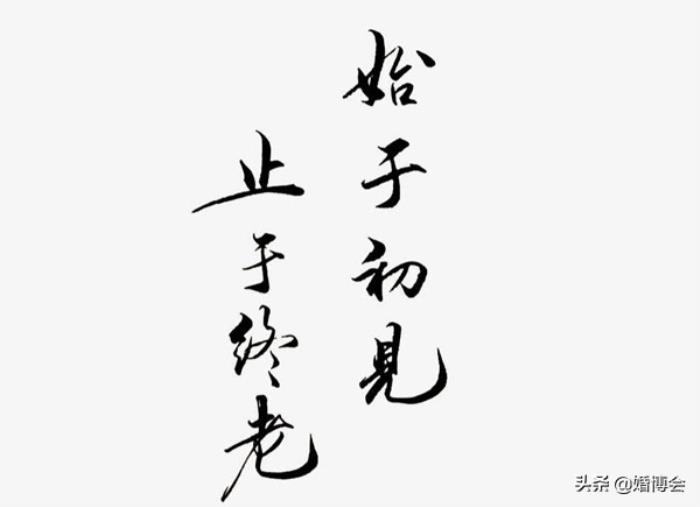 始于初見
止于终老
头条 @婚博会